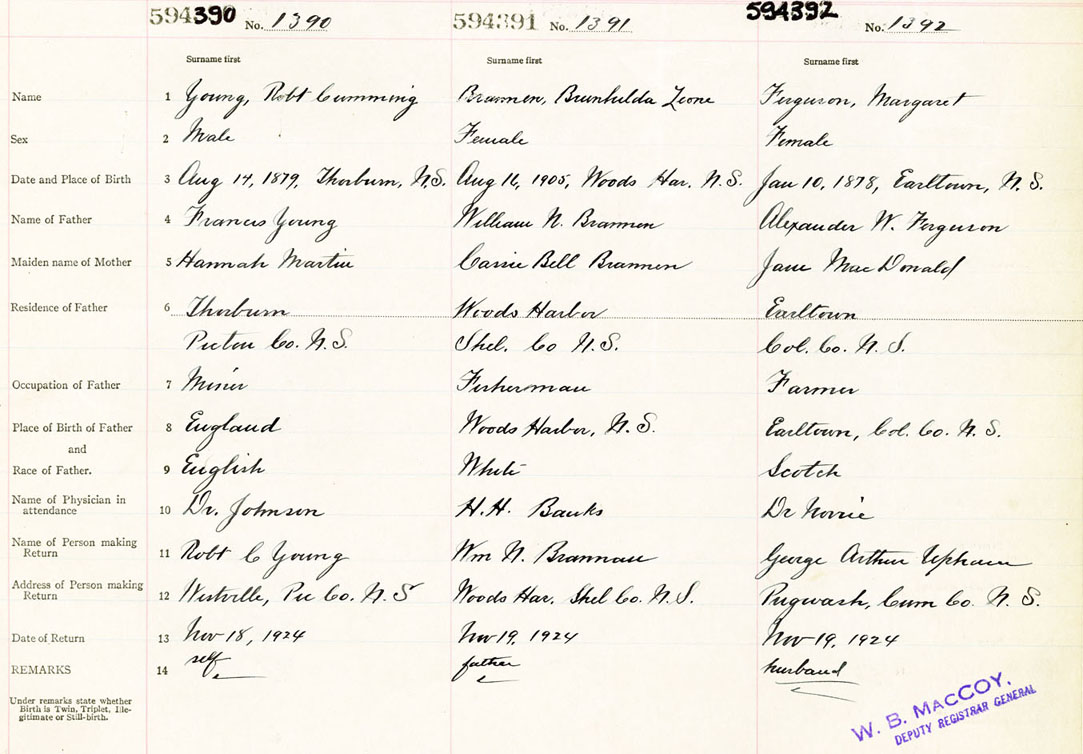 594390 No. 1390 594391 No. 1391 594392 No. 1392
Surname first Surname first Surname first
Name 1 Young, Robt Cumming Brannen, Brunhilda Zeone Ferguson, Margaret
Sex 2 Male Female Female
Date and Place of Birth 3 Aug 14, 1879, Thorburn, N.S. Aug 16, 1905, Woods Har. N.S. Jan 10, 1878, Earltown, N.S.
Name of Father 4 Francis Young William N. Brannen Alexander W. Ferguson
Maiden name of Mother 5 Hannah Martin Carrie Bell Brannen Jane MacDonald
Residence of Father 6 Thorburn Woods Harbor Earltown
Pictou Co. N.S. Shel. Co N.S. Col. Co. N.S.
Occupation of Father 7 Miner Fisherman Farmer
Place of Birth of Father 8 England Woods Harbor, N.S. Earltown, Col. Co. N.S.
and
Race of Father. 9 English White Scotch
Name of Physician in
attendance 10 Dr. Johnson H.H. Banks Dr Norrie
Name of Person making
Return 11 Robt C Young Wm N. Brannan George Arthur Upham
Address of Person making
Return 12 Westville, Pic Co. N.S Woods Har. Shel Co. N.S. Pugwash, Cum Co. N.S.
Date of Return 13 Nov 18, 1924 Nov 19, 1924 Nov 19, 1924
REMARKS 14 self father husband
Under remarks state whether
Birth is Twin, Triplet, Ille-
gitimate or Still-birth.
W. B. MACCOY,
DEPUTY REGISTRAR GENERAL